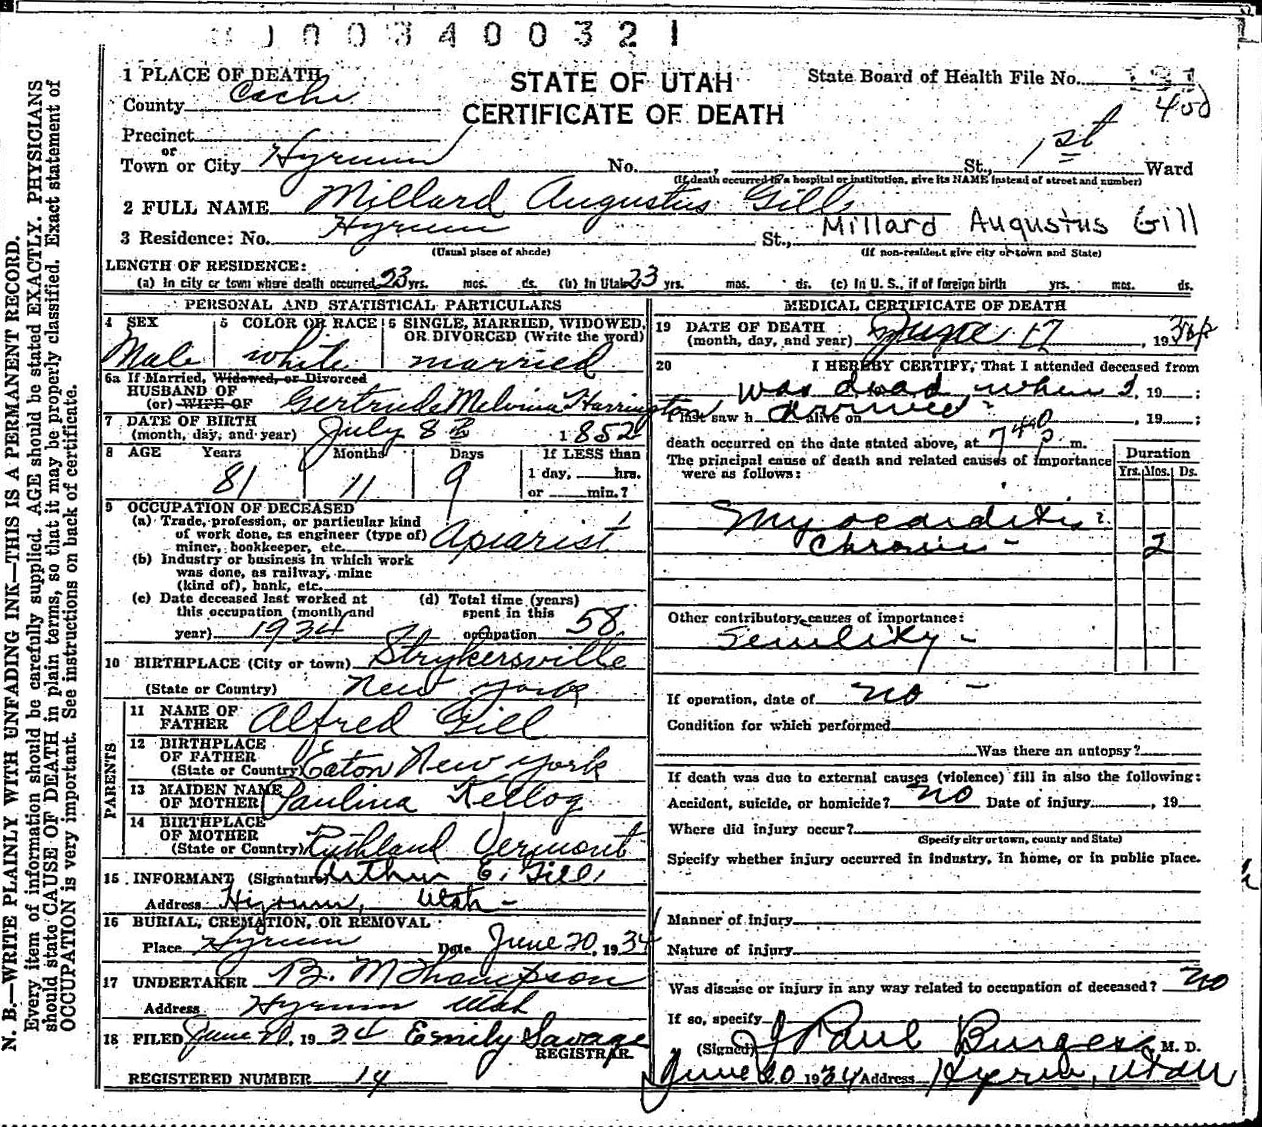 0003400321
1 PLACE OF DEATH
County Cache
STATE OF UTAH
CERTIFICATE OF DEATH
State Board of Health File No.
400
Precinct
or
Town or City Hyrum No. , St., 1st Ward
(If death occurred in a hospital or institution, give its NAME instead of street and number)
2 FULL NAME Millard Augustus Gill
3 Residence: No. Hyrum St., Millard Augustus Gill
(Usual place of abode) (If non-resident give city or town and State)
LENGTH OF RESIDENCE:
(a) In city or town where death occurred 23 yrs. mos. ds. (b) In Utah 23 yrs. mos. ds. (c) In U. S., if of foreign birth yrs. mos. ds.
PERSONAL AND STATISTICAL PARTICULARS
4 SEX Male
5 COLOR OR RACE white
6 SINGLE, MARRIED, WIDOWED, OR DIVORCED (Write the word) married
6a If Married, Widowed, or Divorced
HUSBAND OF
(or) WIFE OF Gertrude Melvina Harrington
7 DATE OF BIRTH
(month, day, and year) July 8th 1852
8 AGE Years Months Days If LESS than
81 11 9 1 day, hrs.
or min.?
9 OCCUPATION OF DECEASED
(a) Trade, profession, or particular kind
of work done, as engineer (type of)
miner, bookkeeper, etc. Apiarist
(b) Industry or business in which work
was done, as railway, mine
(kind of), bank, etc.
(c) Date deceased last worked at
this occupation (month and
year) 1934
(d) Total time (years)
spent in this
occupation 58
10 BIRTHPLACE (City or town) Strykersville
(State or Country) New York
PARENTS
11 NAME OF
FATHER Alfred Gill
12 BIRTHPLACE
OF FATHER
(State or Country) Eaton New York
13 MAIDEN NAME
OF MOTHER Paulina Kellog
14 BIRTHPLACE
OF MOTHER
(State or Country) Ruthland Vermont
15 INFORMANT (Signature) Arthur E. Gill
Address Hyrum, Utah -
16 BURIAL, CREMATION, OR REMOVAL
Place Hyrum Date June 20, 1934
17 UNDERTAKER B. M Thompson
Address Hyrum Utah
18 FILED June 20, 1934 Emily Savage
REGISTRAR
REGISTERED NUMBER 14
MEDICAL CERTIFICATE OF DEATH
19 DATE OF DEATH
(month, day, and year) June 17, 1934
20 I HEREBY CERTIFY, That I attended deceased from
was dead when I, 19 ;
I last saw h arrived alive on , 19 ;
death occurred on the date stated above, at 7 40 p m.
The principal cause of death and related causes of importance
were as follows:
Duration
Yrs. Mos. Ds.
Myocarditis?
Chronic - 2
Other contributory causes of importance:
Senility -
If operation, date of no -
Condition for which performed
Was there an autopsy?
If death was due to external causes (violence) fill in also the following:
Accident, suicide, or homicide? no Date of injury , 19
Where did injury occur?
(Specify city or town, county and State)
Specify whether injury occurred in industry, in home, or in public place.
Manner of injury
Nature of injury
Was disease or injury in any way related to occupation of deceased? no
If so, specify
(Signed) J Paul Burgess M. D.
June 20 1934 Address Hyrum, Utah
N. B.—WRITE PLAINLY WITH UNFADING INK—THIS IS A PERMANENT RECORD.
Every item of information should be carefully supplied. AGE should be stated EXACTLY. PHYSICIANS
should state CAUSE OF DEATH in plain terms, so that it may be properly classified. Exact statement of
OCCUPATION is very important. See instructions on back of certificate.